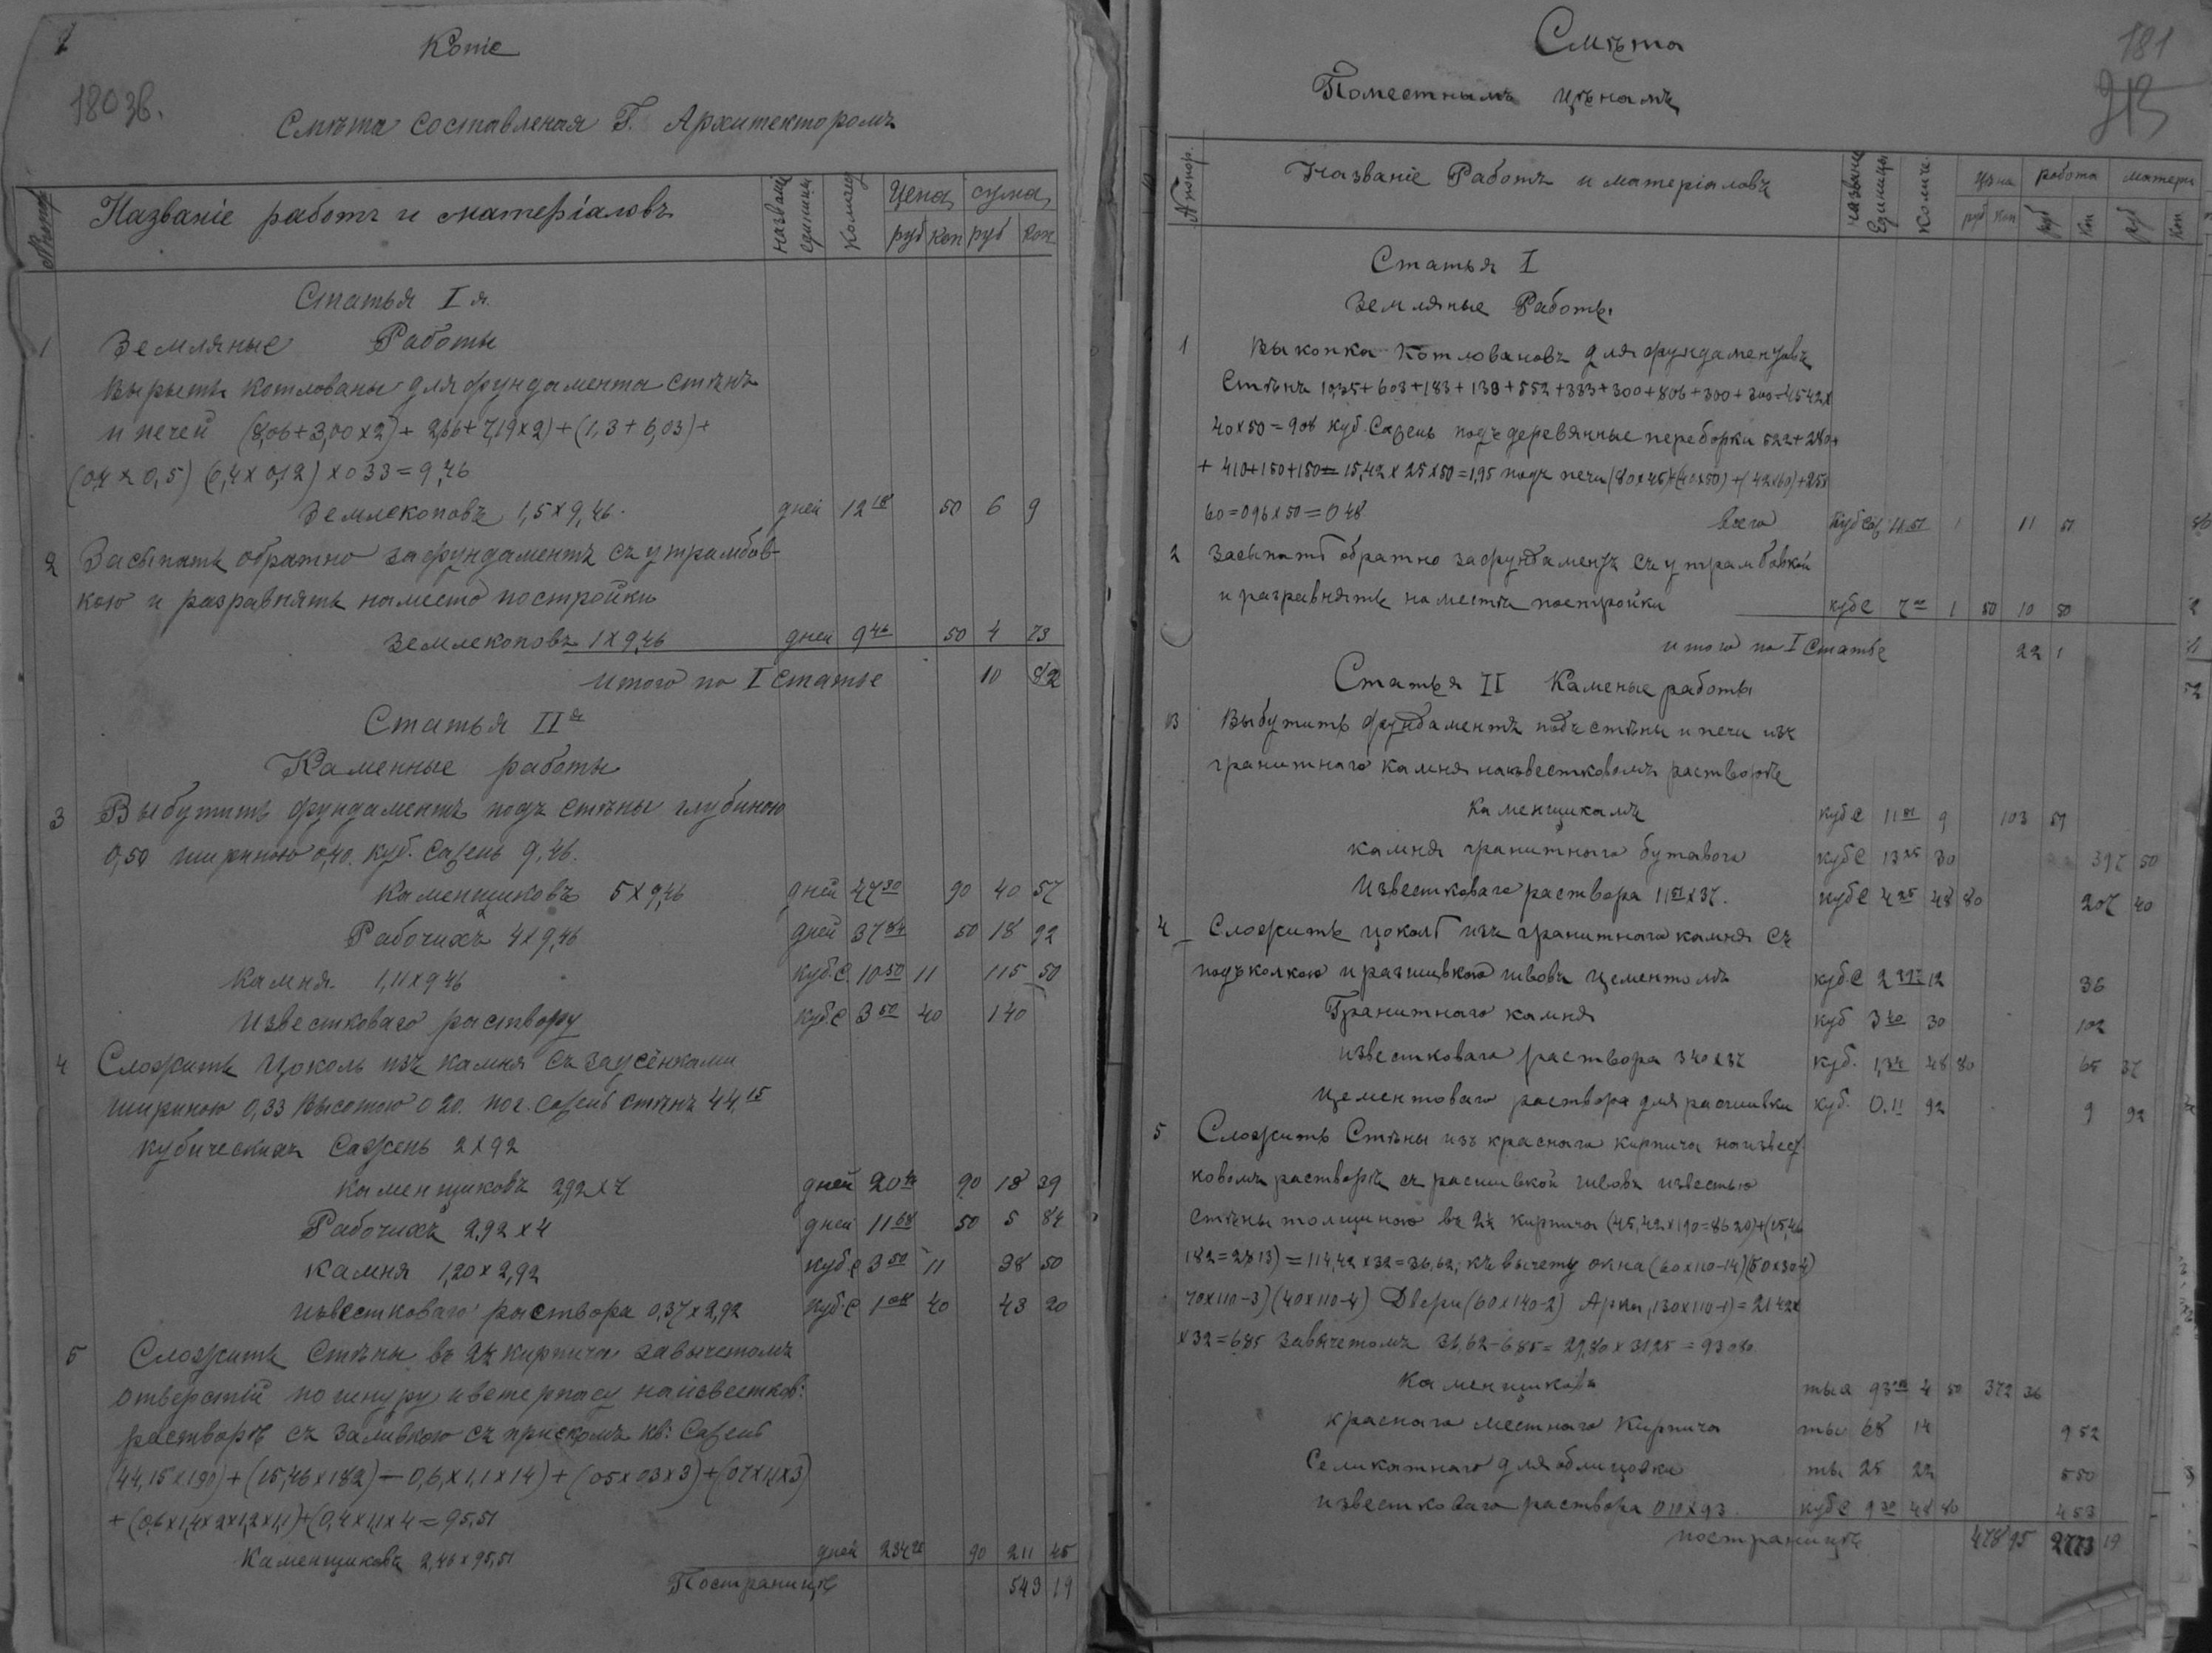 Копіе
180 зв.
Смѣта составленая Г. Архитекторомъ
Названіе работъ и матеріаловъ
названіе единицы
Количес
Цена
сума
руб коп руб коп
Статья I я
1 Земляные Работы
Вырыть котлованы для фундамента стѣнъ
и печей (8,06+3,00х2)+ 2,66+7,19х2)+(1,3+6,03)+
(0,4х0,5) (0,4х0,12)х033=9,46
Землекоповъ 1,5х9,46. дней 12 18 50 6 9
2 Засыпать обратно зафундаментъ съ утрамбов-
кою и разравнять наместо постройки
Землекоповъ 1х9,46 дней 9 46 50 4 73
итого по I статье 10 82
Статья II я
Каменные работы
3 Выбутить фундаментъ подъ стѣны глубиною
0,50 шириною 0,40. куб. сажень 9,46.
Каменщиковъ 5х9,46 дней 47 30 90 40 57
Рабочихъ 4х9,46 дней 37 84 50 18 92
Камня 1,11х946 куб.с. 10 50 11 115 50
Известковаго раствору куб.с 3 50 40 140
4 Сложить Цоколь изъ камня съ заусёнками
шириною 0,33 высотою 0 20. пог. сажень стѣнъ 44,15
кубическихъ Сажень 2х92
Каменщиковъ 2,92х7 дней 20 44 90 18 39
Рабочихъ 2,92х4 дней 11 68 50 5 84
Камня 1,20х2,92 куб с 3 50 11 38 50
известковаго раствора 0,37х2,92 куб.с 1 08 40 43 20
5 Сложить Стѣны въ 2½ кирпича завычетомъ
отверстій по шнуру иватерпасу наизвестков:
растворѣ съ заливкою съ прискомъ кв: Сажень
(44,15х190)+(15,46х182)—0,6х1,1х14)+(05х03х3)+(07х1,1х3)
+(0,6х1,4х2х1,2х1,1)+(0,4х1,1х4=95,51
Каменщиковъ 2,46х95,51 дней 234 95 90 211 45
Постраницѣ 543 19
181
Смѣта
Поместнымъ цѣнамъ
№ попор.
Названіе Работъ и матеріаловъ
название Единицы
Колич.
цѣна работа матери
руб коп руб коп руб коп
Статья I
Земляные Работы
1 Выкопка Котловановъ для фундаментовъ
Стѣнъ 10,35+603+183+133+552+333+300+806+300+300=4542х
40х50=908 куб. Сажень подъ деревянные переборки 522+280+
+ 410+150+150=15,42х25х50=1,95 подъ печи (80х45)+(40х50)+(42х60)+255
60=096х50=048 всего Куб Саж 11 51 1 11 51
2 Засыпать обратно зафундаментъ съ утрамбовкой
и разравнять на местѣ постройки куб с 7 00 1 50 10 50
итого по I статьѣ 22 1
Статья II Каменые работы
3 Выбутить фундаментъ подъ стѣны и печи изъ
гранитнаго камня наизвестковомъ растворѣ
Каменщикамъ куб с 11 51 9 103 59
камня гранитнаго бутаваго куб с 13 25 30 397 50
Известковаго раствора 11 51х37. куб с 4 25 48 80 207 40
4 Сложить цоколь изъ гранитнаго камня съ
подъколкою и расшивкою швовъ цементомъ куб.с 2 12 36
Гранитнаго камня куб 3 40 30 102
известковаго раствора 340х37 куб. 1,34 48 80 65 37
Цементоваго раствора для расшивки куб. 0,11 92 9 92
5 Сложить Стѣны изъ краснаго кирпича наизвест
ковомъ растворѣ съ расшивкой швовъ известью
Стѣны толщиною въ 2½ кирпича (45,42х190=8620)+(15,46
182=2813)=114,42х32=36,62; къ вычету окна (60х110-14)(50х30-4)
70х110-3)(40х110-4) Двери (60х140-2) Арки, 130х110-1)=2142х
х32=685 завычетомъ 36,62-685=29,80х3125=93080
Каменщиковъ тыс 93 08 4 50 372 36
краснаго местнаго Кирпича тыс 68 14 952
Селикатнаго для облицовки ты 25 22 550
известковаго раствора 010х93 куб с 9 30 48 80 453
постраницѣ 478 95 2773 19